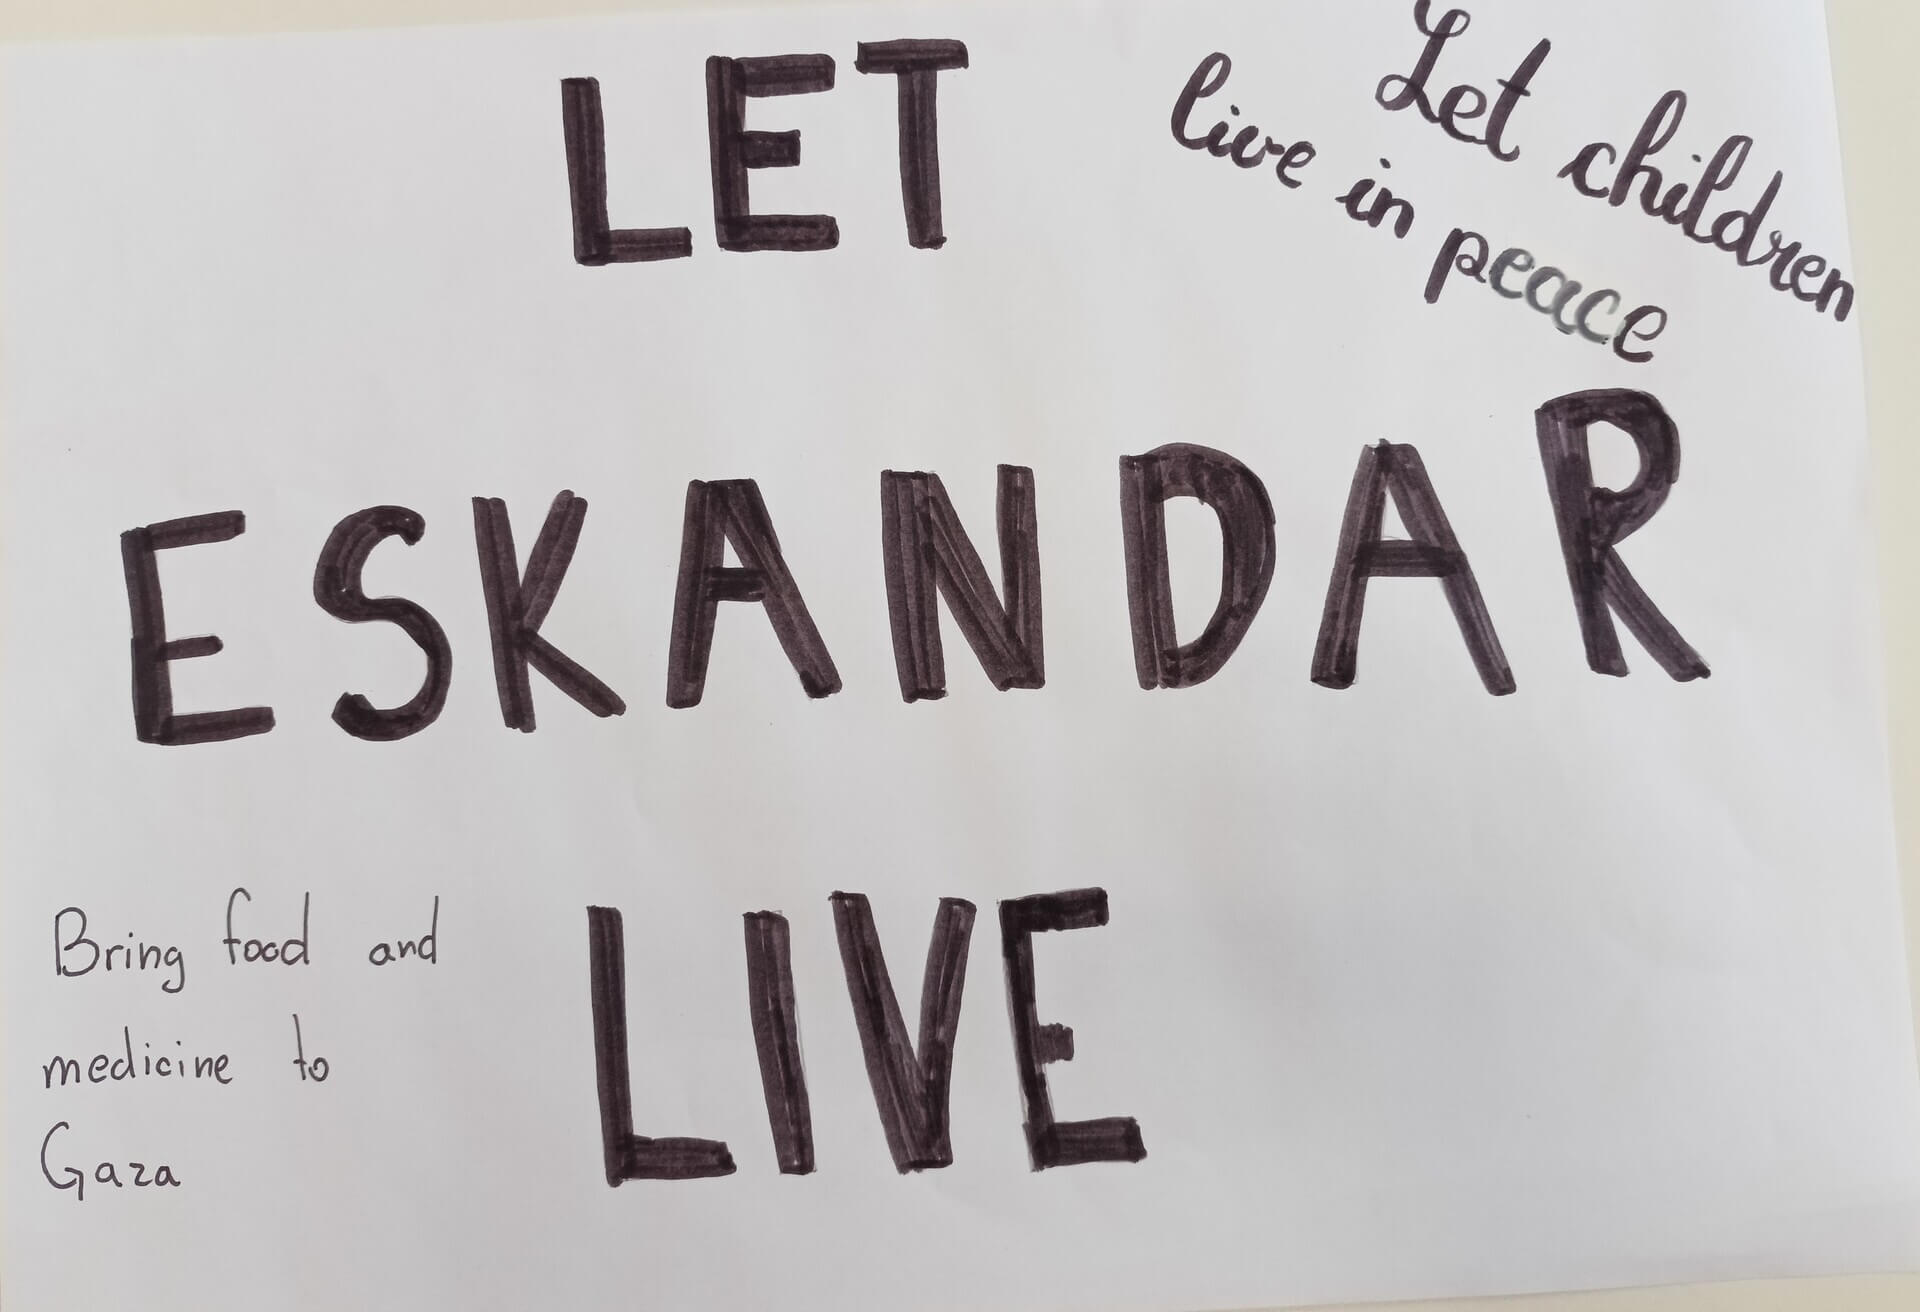 LET
Let children
live in peace
ESKANDAR
LIVE
Bring food and
medicine to
Gaza